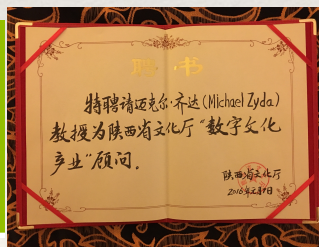 聘书
特聘请迈克尔·齐达(Michael Zyda)
教授为陕西省文化厅“数字文化
产业”顾问。
陕西省文化厅